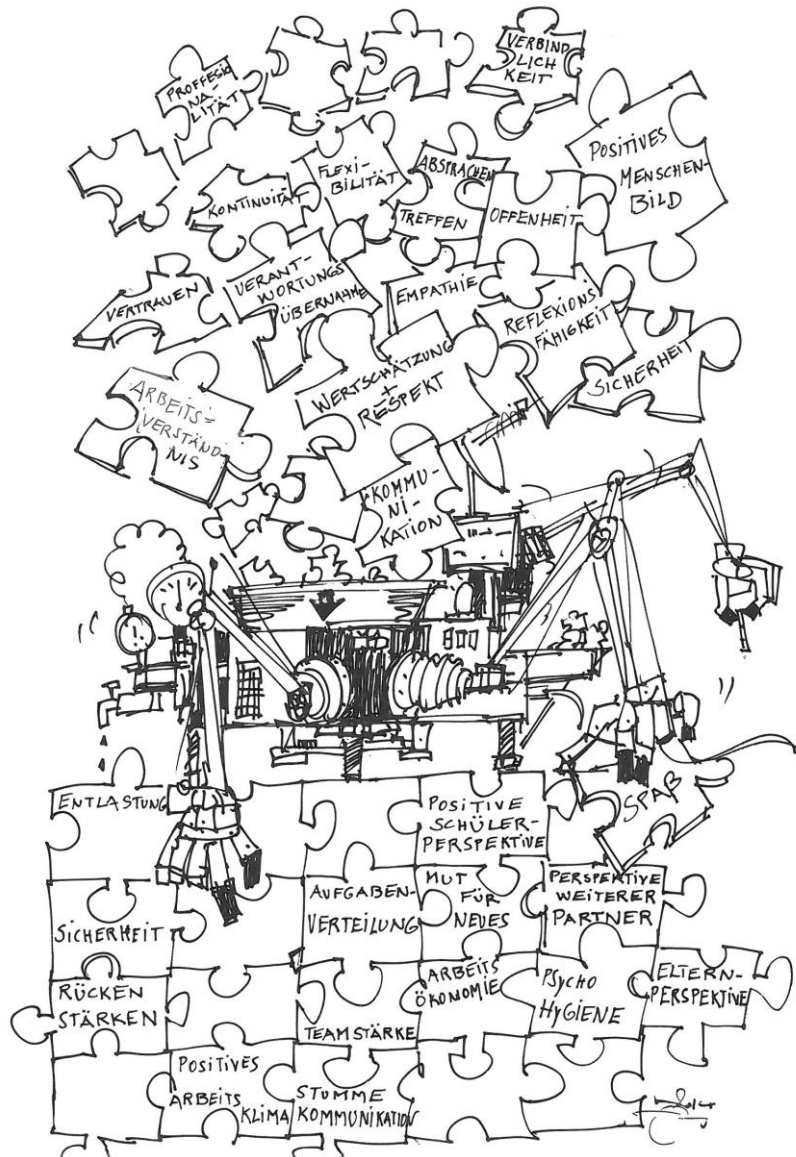 PROFFESIO
NA-
LITÄT
VERBIND
LICH
KEIT
POSITIVES
MENSCHEN-
BILD
KONTINUITÄT
FLEXI-
BILITÄT
ABSPRACHEN
TREFFEN
OFFENHEIT
VERTRAUEN
VERANT-
WORTUNGS
ÜBERNAHME
EMPATHIE
REFLEXIONS
FÄHIGKEIT
SICHERHEIT
WERTSCHÄTZUNG
+
RESPEKT
ARBEITS=
VERSTÄND
NIS
KOMMU-
NI-
KATION
SPAß
ENTLASTUNG
POSITIVE
SCHÜLER-
PERSPEKTIVE
SICHERHEIT
AUFGABEN-
VERTEILUNG
MUT
FÜR
NEUES
PERSPEKTIVE
WEITERER
PARTNER
RÜCKEN
STÄRKEN
TEAMSTÄRKE
ARBEITS
ÖKONOMIE
PSYCHO
HYGIENE
ELTERN-
PERSPEKTIVE
POSITIVES
ARBEITS
KLIMA
STUMME
KOMMUNIKATION